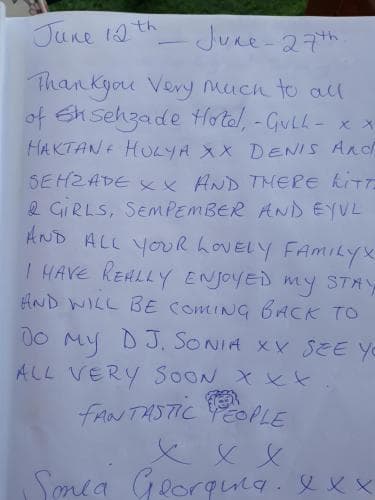 June 12th — June - 27th.
Thankyou Very much to all
of Sehzade Hotel, - GULL - x x
HAKTAN + HULYA xx DENIS And
SEHZADE xx AND THERE
2 GIRLS, SEMPEMBER AND EYUL
AND ALL YOUR LOVELY FAMILY x
I HAVE REALLY ENJOYED my STAY
AND WILL BE COMING BACK TO
DO MY D J. SONIA xx SEE
ALL VERY SOON x x x.
FANTASTIC PEOPLE
x x x
Sonia Georgina. x x x